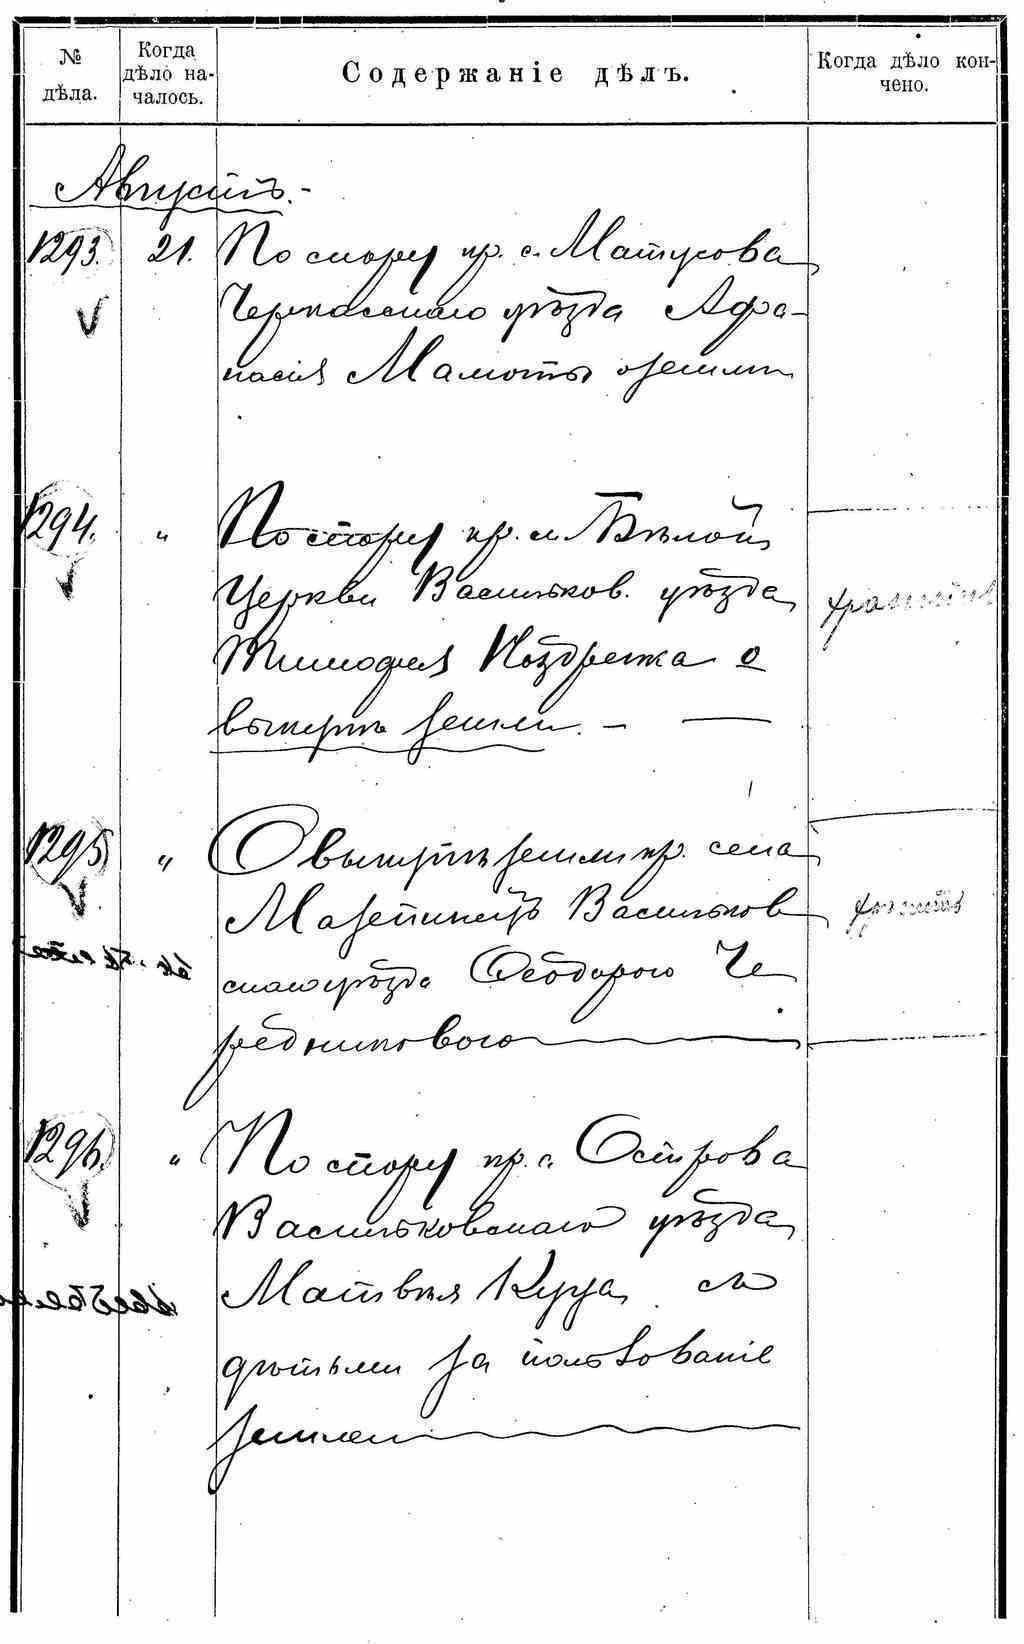 № дѣла.
Когда дѣло на-
чалось.
Содержаніе дѣлъ.
Когда дѣло кон-
чено.
Августъ.
1293. 21. По спору кр. с. Матусова
Черкасскаго уѣзда Афа-
насія Мамоты о земли
1294. " По спору кр. м. Бѣлой
Церкви Васильков. уѣзда
Тимофея о
выкупѣ земли. —
1295 " О выкупѣ земли кр. села
Мазепинецъ Васильков
скаго уѣзда Ѳеодорою Че
редниковою
1296. " По спору кр. с. Острова
Васильковскаго уѣзда
Матвѣя Куца съ
дѣтьми за пользованіе
землею